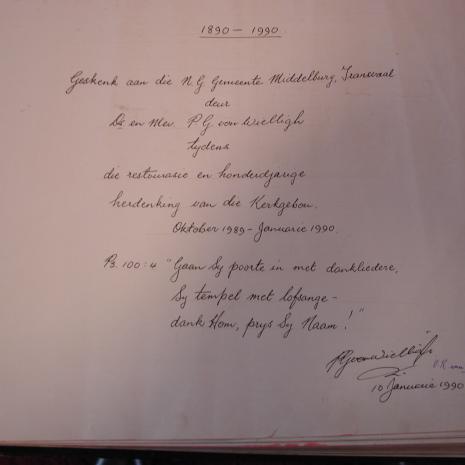 1890 - 1990
Geskenk aan die N.G Gemeente Middelburg, Transvaal
deur
Ds en Mev. P G von Wielligh
tydens
die restourasie en honderdjarige
herdenking van die Kerkgebou.
Oktober 1989 - Januarie 1990.
Ps. 100:4 "Gaan Sy poorte in met dankliedere,
Sy tempel met lofsange -
dank Hom, prys Sy Naam!"
PGvonWielligh
10 Januarie 1990